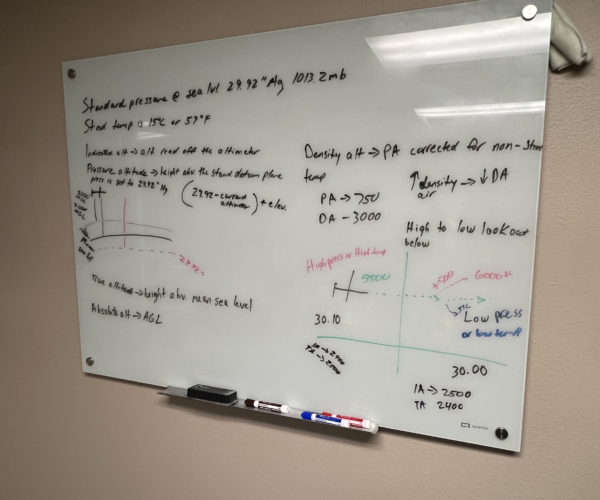 Standard pressure @ sea lvl 29.92 "Hg 1013.2mb
Stnd temp is 15°C or 59°F
Indicated alt → alt read off the altimeter
Pressure altitude → height abv. the stand datum plane
press is set to 29.92 "Hg
(29.92 - current altimeter) + elev.
29.92
True altitude → height abv. mean sea level
Absolute alt → AGL
Density alt → PA corrected for non-stan
temp
PA → 750
DA - 3000
↑density → ↓ DA
air
High to low look out
below
High press or High temp
5500
+500
6000
Low press
or low temp
30.10
30.00
IA → 2500
TA 2400